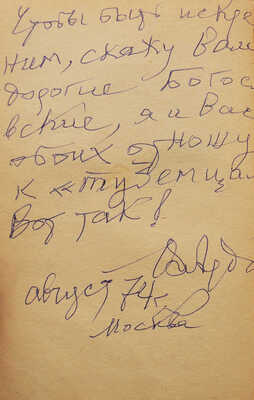 Чтобы быть искре
ним, скажу Вам
дорогие Богос
вские, я и Вас
обоих отношу
к «туземца
Вот так!
август 74г.
Москва